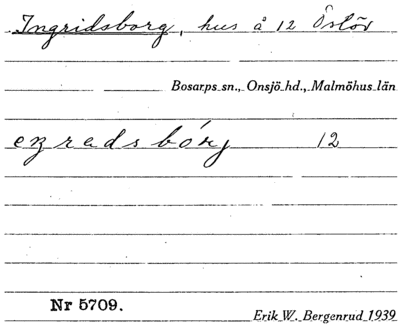 Ingridsborg, hus å 12 Östöv
Bosarps sn., Onsjö hd., Malmöhus län
ezradsbórj 12
Nr 5709.
Erik W. Bergenrud 1939